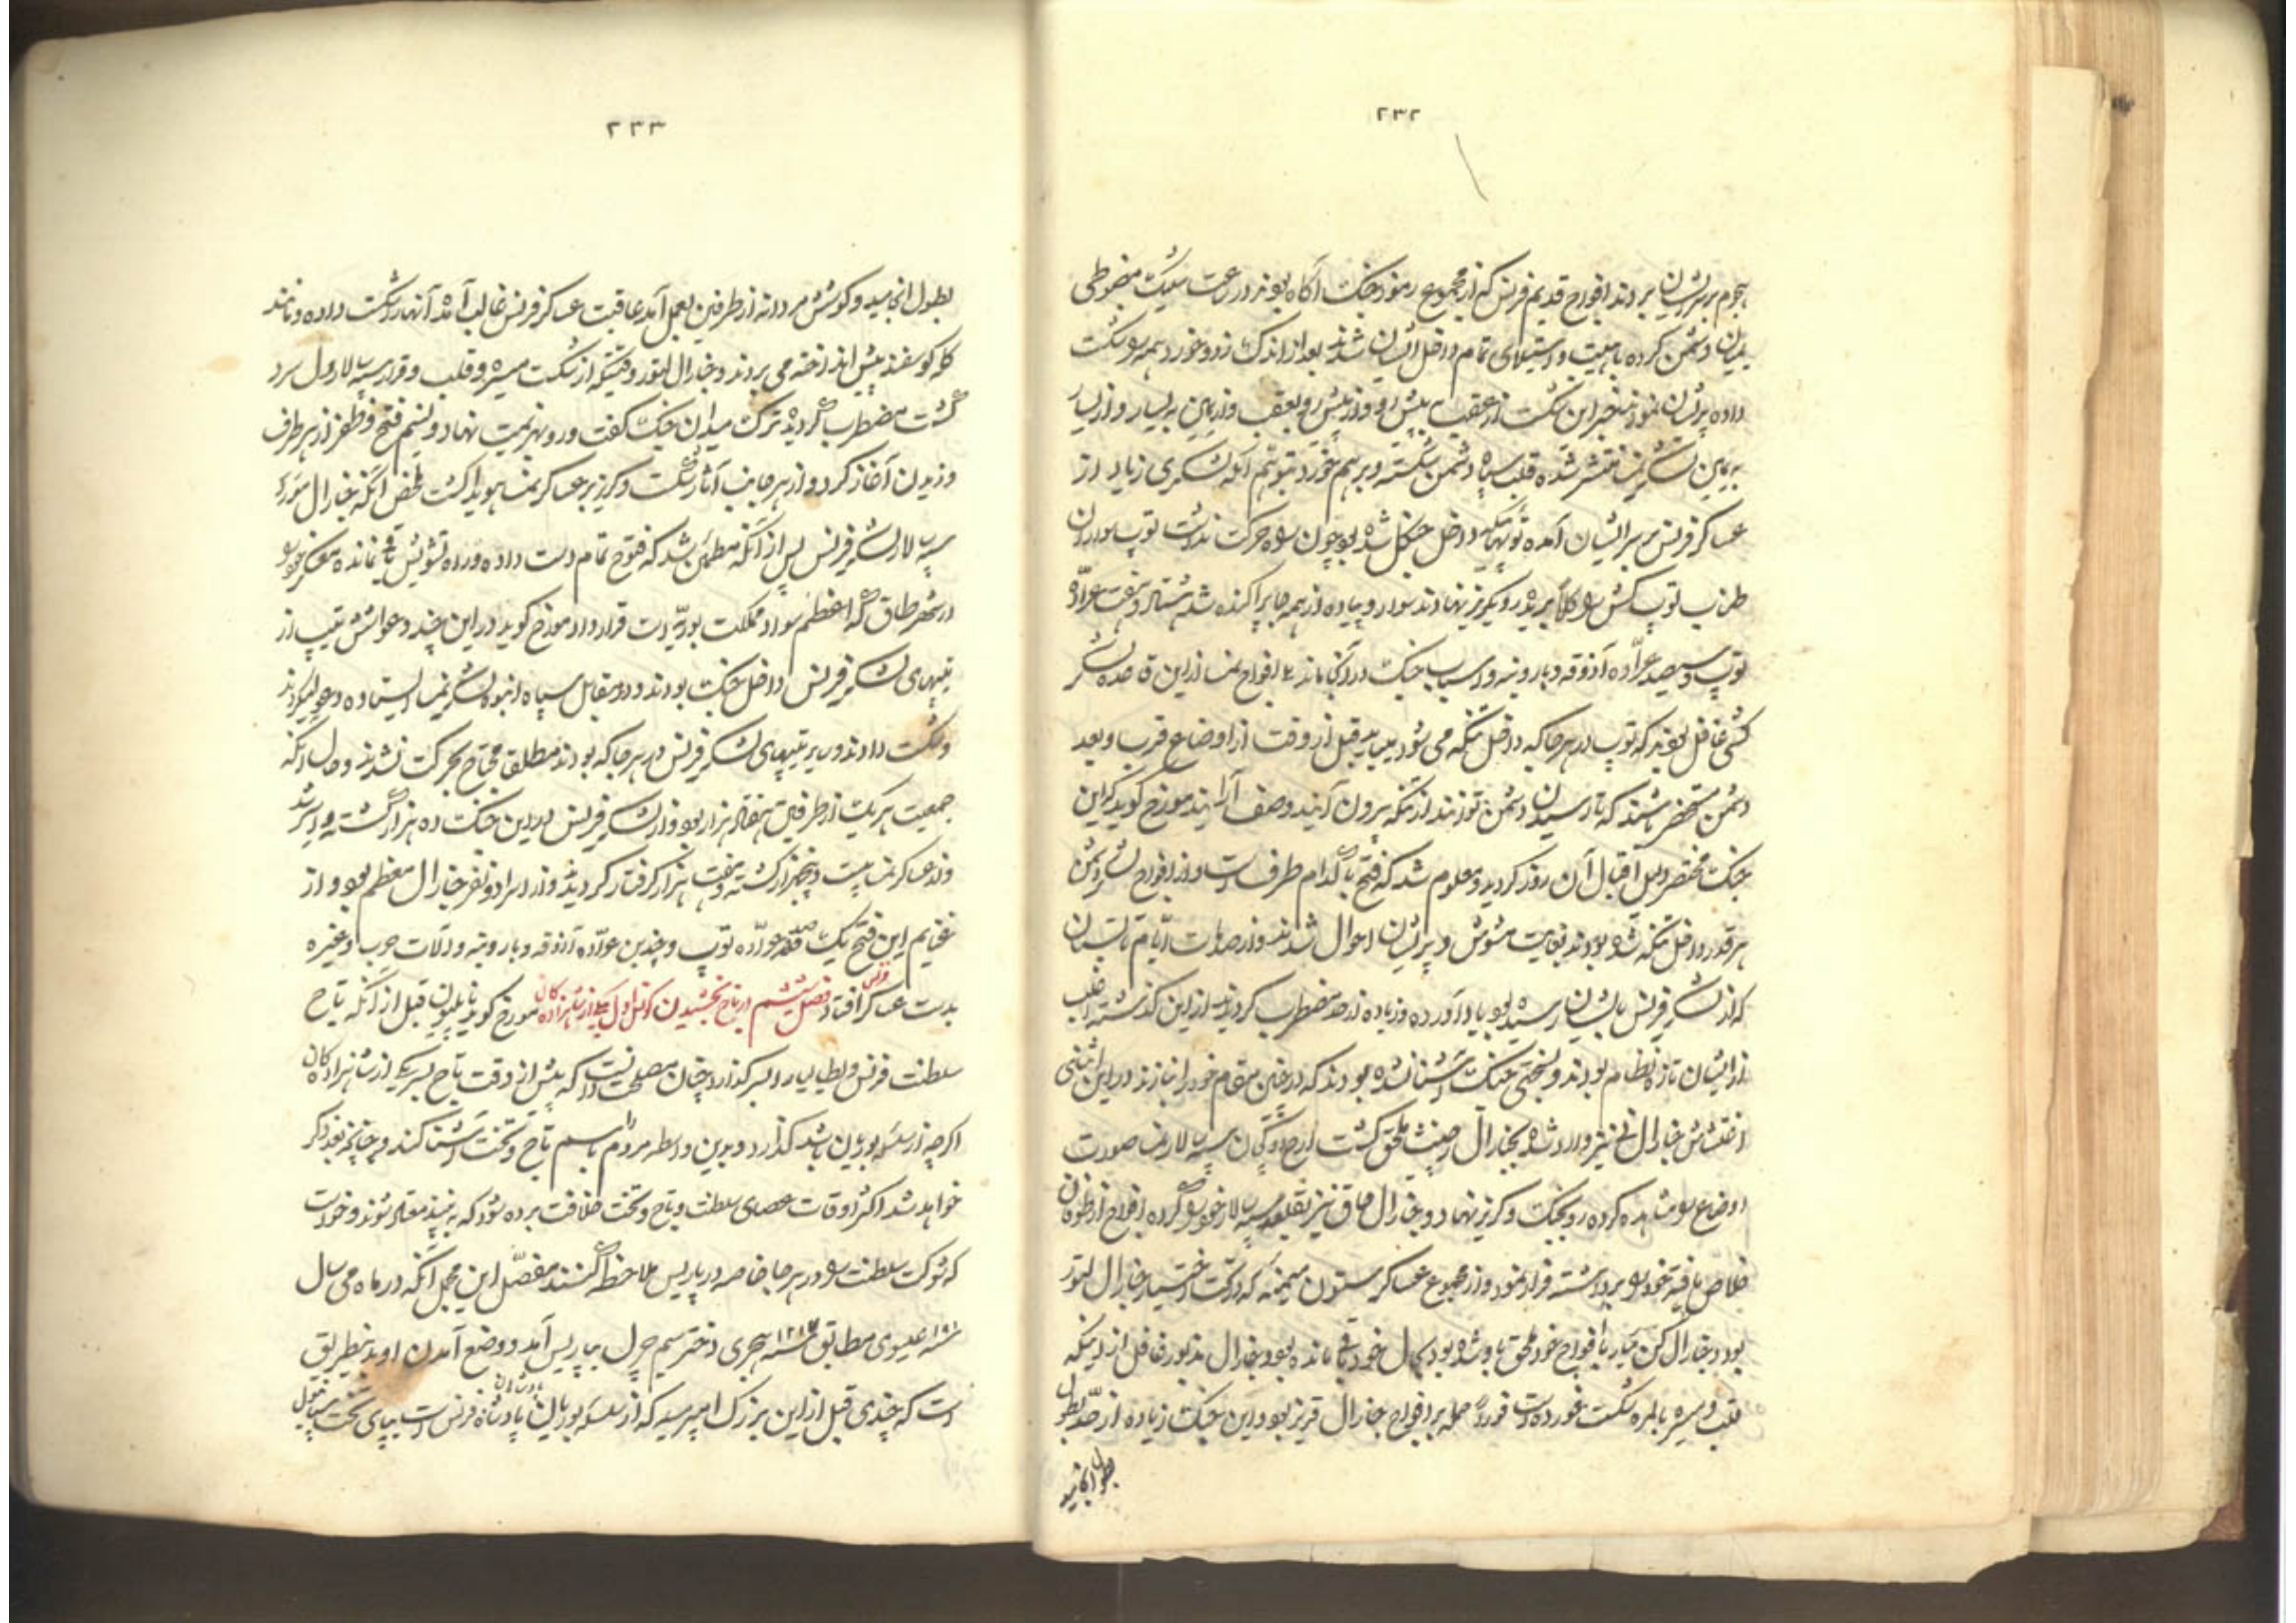 ۲۳۲
هجوم بر سر ایشان بردند افواج قدیم فرنس که از مجموع رموز جنک آگاه بودند در
یمیان دشمن کرده با هیبت و استیلای تمام داخل ایشان شدند بعد از اندک زد و خورد همه را شکست
داده پریشان نمودند خبر این شکست از عقب به پیش رو و از پیش رو بعقب و از یمین به یسار و از یسار
به یمین لشکر نمسا منتشر شده قلب سپاه دشمن شکسته و بر هم خورد بتوهم آنکه لشکری زیاد از
عساکر فرنس بر سر ایشان آمده توپهائیکه داخل جنکل شده بود چون راه حرکت نداشت توپ سواران
طناب توپ کش را کلاً بریده رو بکریز نهادند سوار و پیاده از همه جا پراکنده شد هشتاد و هفت عراده
توپ و سیصد عراده آذوقه و باروت و اسباب جنک در آنجا ماند افواج نمسا از این قاعده لشکر
کشی غافل بودند که توپ در هر جا که داخل تنکه می شود میباید قبل از وقت از اوضاع قرب و بعد
دشمن مستحضر باشند که تا رسیدن دشمن توانند از تنکه بیرون آیند و صف آرایند مورخ کوید که این
جنک مختصر دلیل اقبال آن روز کردید و معلوم شد که فتح با کدام طرف است و از افواج لشکر دشمن
هر قدر داخل تنکه شده بودند بغایت مشوش و پریشان احوال شدند و از صدمات ایام تابستان
که از لشکر فرنس بایشان رسیده بود یاد آورده و زیاده از حد مضطرب کردیدند از این کذشته اغلب
از ایشان تازه نظام بودند و بسختی جنک آشنا نشده بودند که در چنین مقام خود را نبازند در این اثنی
جنارال نی نیز وارد شده بجنارال ملحق کشت سپه سالار نمسا صورت
اوضاع را مشاهده کرده رو بجنک و کریز نهاد و جنارال ماق نیز بتقلید سپه سالار خود
خلاص یافته خود را برداشته فرار نمود و از مجموع عساکر ستون میمنه که در تحت اختیار جنارال لتور
بود و جنارال کن میار با افواج خود ملحق باو شده بود بحال خود باقی مانده بود و جنارال مذبور غافل از اینکه
قلب و میسره بالمره شکست خورده است حمله بر افواج جنارال قرنیز بود و این جنک زیاده از حد بطول
بطول انجامید
۲۳۳
بطول انجامید و کوشش مردانه از طرفین بعمل آمد عاقبت عساکر فرنس غالب آمده آنها را شکست داده و مانند
کله کوسفند پیش انداخته می بردند و جنارال لتور وقتیکه از شکست میسره و قلب و فرار سپه سالار دل سرد
کشت مضطرب کردیده ترک میدان جنک کفت و رو بهزیمت نهاد و نسیم فتح و ظفر از هر طرف
وزیدن آغاز کرد و از هر جانب آثار شکست و کریز بر عساکر نمسا هویدا کشت ملخص آنکه جنارال مورو
سپه سالار لشکر فرنس پس از آنکه مطمئن شد که فتوح تمام دست داده و راه تشویش باقی نمانده معسکر خود را
در شهر طاق که اعظم سواد مملکت بوده است قرار داد مورخ کوید در این چند دعوا شش تیپ از
تیپهای لشکر فرنس داخل جنک بودند و در مقابل سپاه انبوه لشکر نمسا ایستاده دعوا میکردند
و شکست دادند و سایر تیپهای لشکر فرنس در هر جا که بودند مطلقا محتاج بحرکت نشدند و حال آنکه
جمعیت هر یک از طرفین هفتاد هزار بود و از لشکر فرنس در این جنک ده هزار کشته و اسیر شد
و از عساکر نمسا بیست و پنجهزار کشته و هفت هزار کرفتار کردید و از اسرا دو نفر جنارال معظم بود و از
غنایم این فتح یک صد عراده توپ و چندین عراده آذوقه و باروت و آلات حرب و غیره
بدست عساکر فرنس افتاد فصل ششم در تاج بخشیدن کنسل اول بیکی از شاهزاده کان مورخ کوید ناپلیون قبل از آنکه تاج
سلطنت فرنس و ایطالیا را بسر کذارد چنان مصلحت دانست که پیش از وقت تاج بسر یکی از شاهزاده کان
اکرچه از سلسله بوربون باشد کذارد و بدین واسطه مردم را باسم تاج و تخت آشنا کند و چنانچه بعد ذکر
خواهد شد اکثر اوقات عصای سلطنت و تاج و تخت خلافت برده شود که به بینند معتاد شوند و خواست
که شوکت سلطنت را در هر جا خاصه در پاریس ملاحظه کنند مفصّل این مجمل آنکه در ماه می سال
عیسوی مطابق سنه هجری دختر سیم چرل به پاریس آمد و وضع آمدن او بدینطریق
است که چندی قبل از این بزرک امپریه که از سلسله بوربان پادشاهان فرنس است بپای تخت